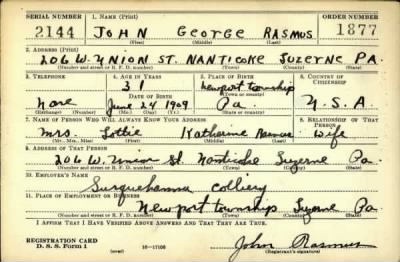 SERIAL NUMBER 1. NAME (Print) ORDER NUMBER
2144 JOHN GEORGE RASMUS 1877
(First) (Middle) (Last)
2. ADDRESS (Print)
206 W. UNION ST. NANTICOKE LUZERNE PA.
(Number and street or R. F. D. number) (Town) (County) (State)
3. TELEPHONE 4. AGE IN YEARS 5. PLACE OF BIRTH 6. COUNTRY OF CITIZENSHIP
31 Newport township
(Town or county)
DATE OF BIRTH
None June 24 1909 Pa. U.S.A.
(Exchange) (Number) (Mo.) (Day) (Yr.) (State or country)
7. NAME OF PERSON WHO WILL ALWAYS KNOW YOUR ADDRESS 8. RELATIONSHIP OF THAT PERSON
Mrs. Lottie Katharine Rasmus Wife
(Mr., Mrs., Miss) (First) (Middle) (Last)
9. ADDRESS OF THAT PERSON
206 W. Union St. Nanticoke Luzerne Pa.
(Number and street or R. F. D. number) (Town) (County) (State)
10. EMPLOYER'S NAME
Susquehanna Colliery
11. PLACE OF EMPLOYMENT OR BUSINESS
Newport township Luzerne Pa.
(Number and street or R. F. D. number) (Town) (County) (State)
I AFFIRM THAT I HAVE VERIFIED ABOVE ANSWERS AND THAT THEY ARE TRUE.
REGISTRATION CARD
D. S. S. Form 1 (over) 16-17105 John Rasmus
(Registrant's signature)